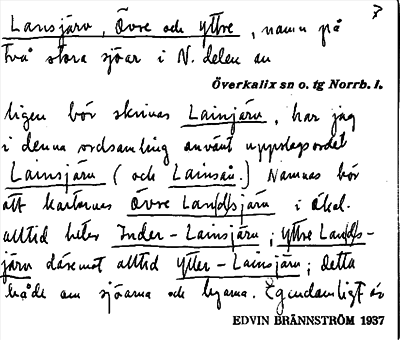 7
Lansjärv, Övre och Yttre, namn på
två stora sjöar i N. delen av
Överkalix sn o. tg Norrb. l.
ligen bör skrivas Lainjärv, har jag
i denna ordsamling använt uppslagsordet
Lainsjärv (och Lainsån.) Nämnas bör
att kartornas Övre Lan(d)sjärv i Ökal.
alltid heter Inder-Lainsjärv; Yttre Lan(d)s-
järv däremot alltid Ytter-Lainsjärv; detta
både om sjöarna och byarna. Egendomligt är
EDVIN BRÄNNSTRÖM 1937